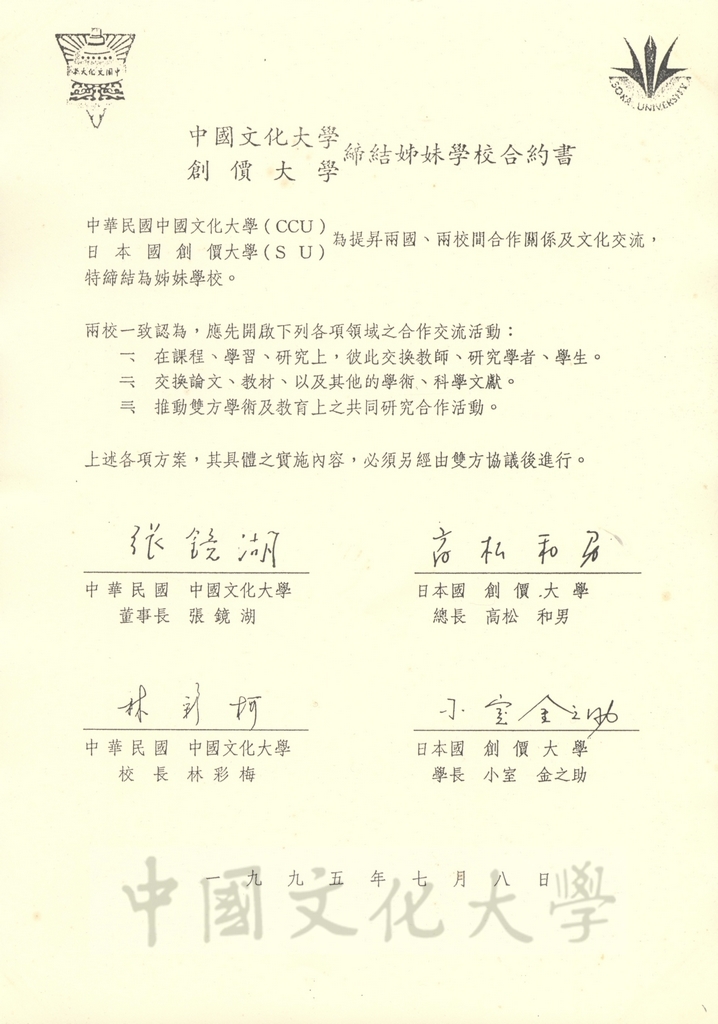 中國文化大學
SOKA UNIVERSITY
中國文化大學
創價大學
締結姊妹學校合約書
中華民國中國文化大學(CCU)
日本國創價大學(SU)
為提昇兩國、兩校間合作關係及文化交流，
特締結為姊妹學校。
兩校一致認為，應先開啟下列各項領域之合作交流活動：
一、在課程、學習、研究上，彼此交換教師、研究學者、學生。
二、交換論文、教材、以及其他的學術、科學文獻。
三、推動雙方學術及教育上之共同研究合作活動。
上述各項方案，其具體之實施內容，必須另經由雙方協議後進行。
張鏡湖
高松和男
中華民國 中國文化大學
董事長 張鏡湖
日本國 創價大學
總長 高松 和男
林彩梅
小室金之助
中華民國 中國文化大學
校長 林彩梅
日本國 創價大學
學長 小室 金之助
一九九五年七月八日
中國文化大學